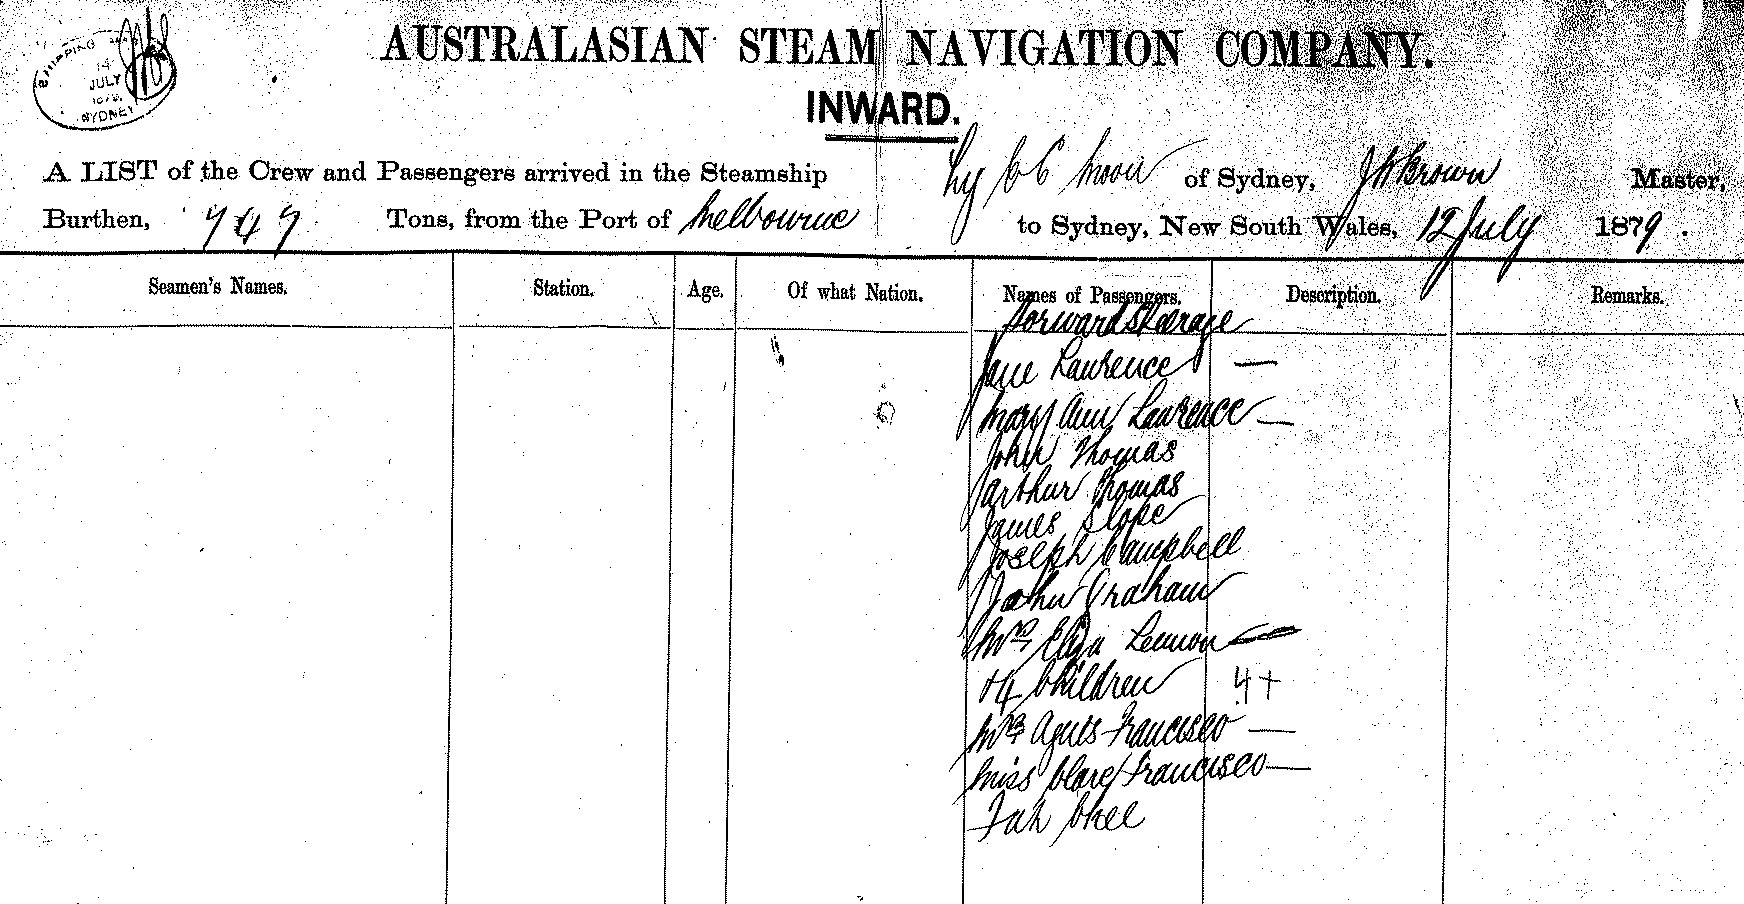 SHIPPING
14
JULY
1879.
SYDNEY
AUSTRALASIAN STEAM NAVIGATION COMPANY.
INWARD.
A LIST of the Crew and Passengers arrived in the Steamship of Sydney, J W Brown Master,
Burthen, 747 Tons, from the Port of Melbourne to Sydney, New South Wales, 12 July 1879.
Seamen's Names. Station. Age. Of what Nation. Names of Passengers. Description. Remarks.
Forward Steerage
Jane Lawrence —
Mary Ann Lawrence —
John Thomas
Arthur Thomas
James Slope
Joseph Campbell
John Graham
Mrs Eliza Lemmon —
+ 4 Children 4 +
Mrs Agnes Francisco —
Miss Clare Francisco —
Fah Chee